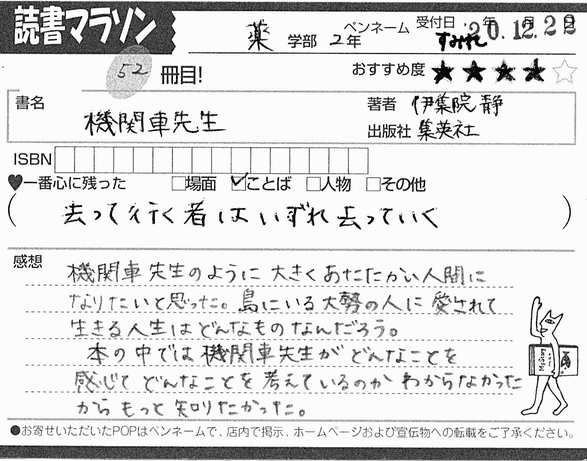 読書マラソン
52 冊目!
薬 学部 2年
ペンネーム すみれ
受付日 20.12.22
年 月 日
おすすめ度 ★★★★☆
書名
機関車先生
著者 伊集院 静
出版社 集英社
ISBN
♥一番心に残った □場面 ☑ことば □人物 □その他
(去って行く者はいずれ去っていく)
感想
機関車先生のように大きくあたたかい人間に
なりたいと思った。島にいる大勢の人に愛されて
生きる人生はどんなものなんだろう。
本の中では機関車先生がどんなことを
感じてどんなことを考えているのかわからなかった
からもっと知りたかった。
●お寄せいただいたPOPはペンネームで、店内で掲示、ホームページおよび宣伝物への転載をご了承ください。